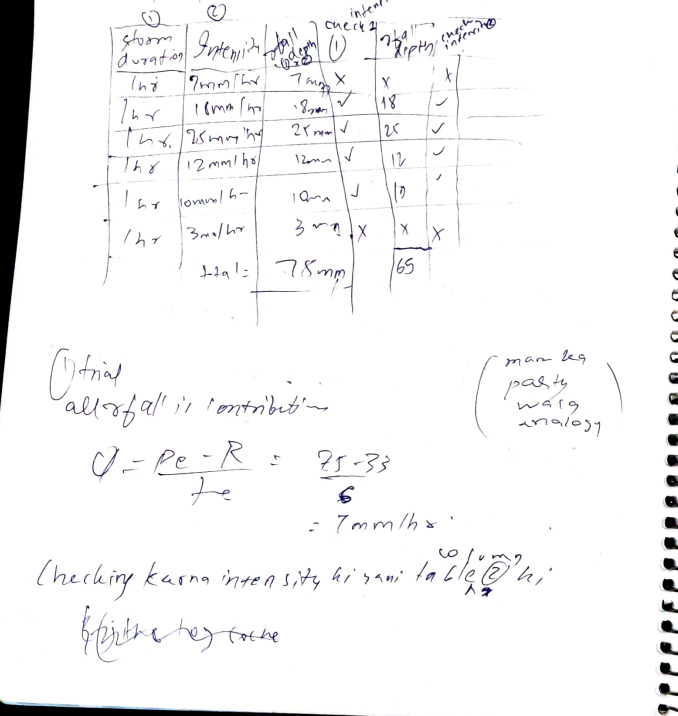 ① ②
storm duration Intensity rfall depth ①x② intensi check 1 ① rfall depth check intensity②
1hr 7mm/hr 7mm x x x
1hr 18mm/hr 18mm ✓ 18 ✓
1hr. 25mm/hr 25mm ✓ 25 ✓
1hr 12mm/hr 12mm ✓ 12 ✓
1hr 10mm/h- 10mm ✓ 10 ✓
1hr 3mm/hr 3mm x x x
total= 75mm 65
① trial
all rfall is contributin
(man ka
party
wala
analogy)
Q = Pe - R / te = 75-33 / 6
= 7mm/hr.
Checking karna intensity ki yani table column ② ki